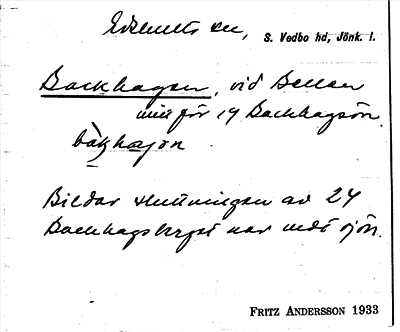 Edshults sn, S. Vedbo hd, Jönk. l.
Backhagen, vid Bellen
mitt för 19 Backhagsön.
bàkhagən
Bildar sluttningen av 24
Backhagsberget ner mot sjön.
FRITZ ANDERSSON 1933